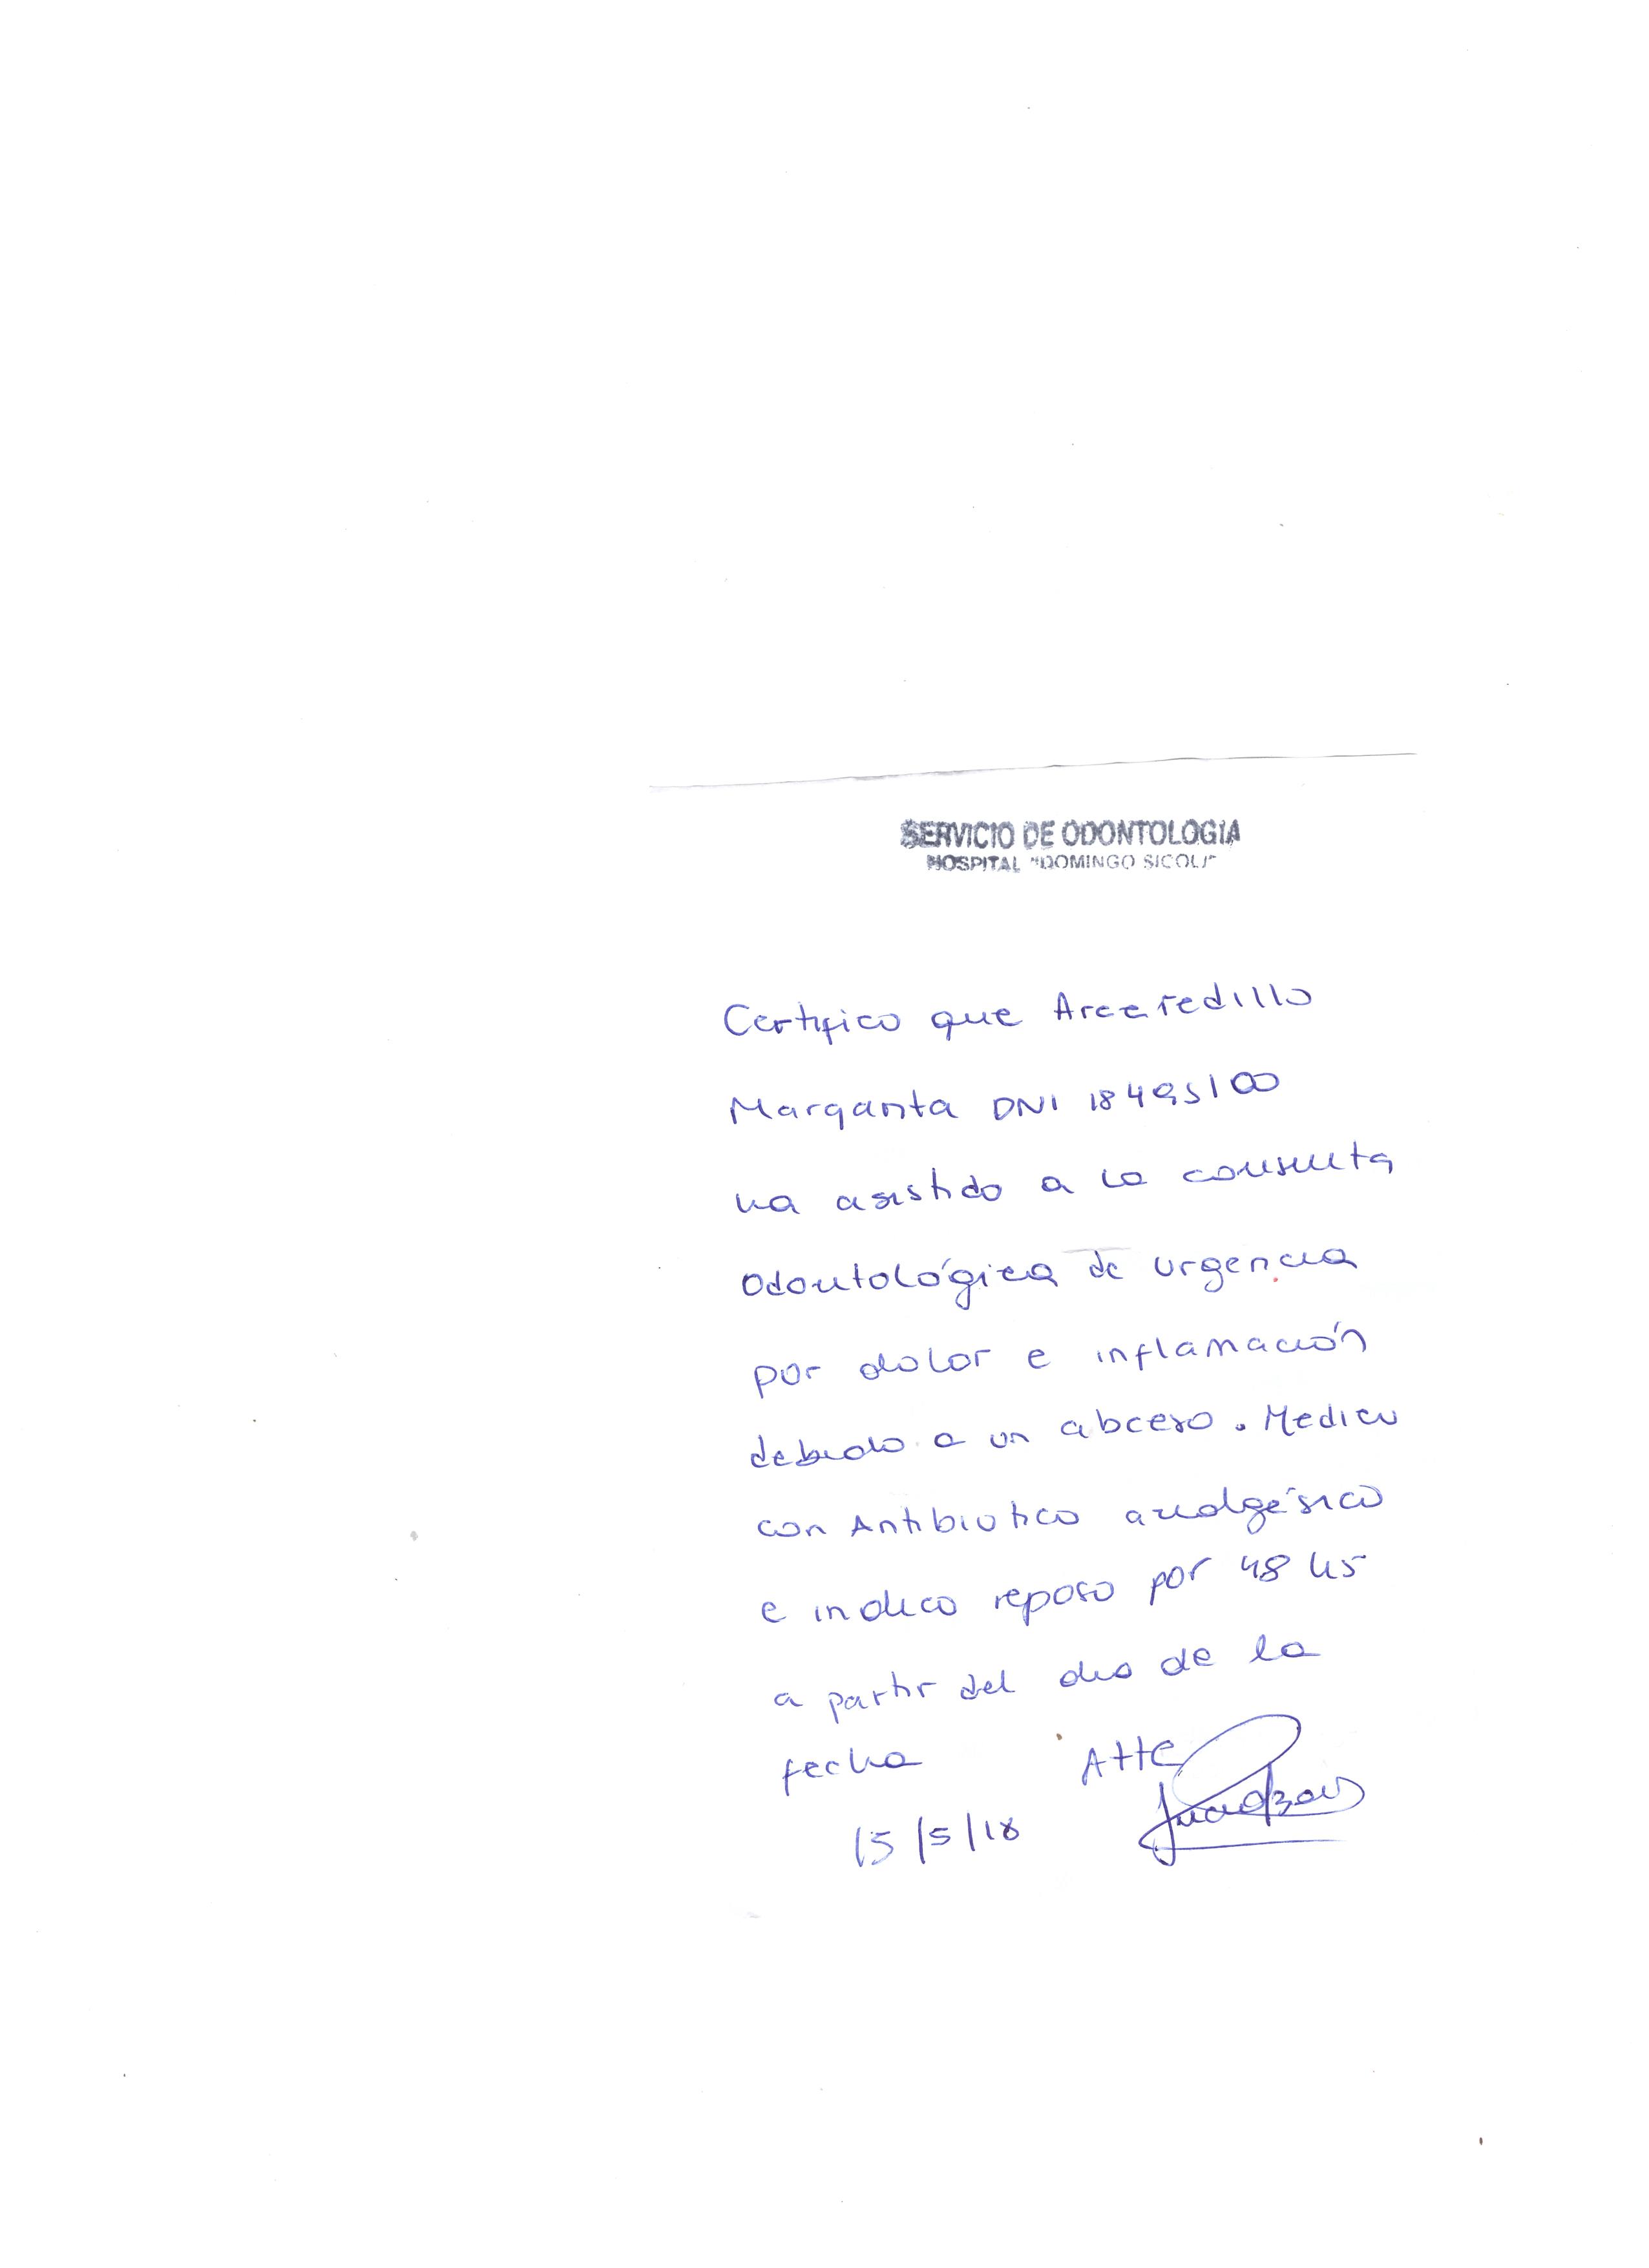 SERVICIO DE ODONTOLOGIA
HOSPITAL "DOMINGO SICOLI"
Certifico que Arceredillo
Margarita DNI 18495100
ha asistido a la consulta
Odontológica de urgencia
por dolor e inflamación
debido a un abceso. Medico
con Antibiotico analgésico
e indico reposo por 48 hs
a partir del dia de la
fecha Atte
15/5/18